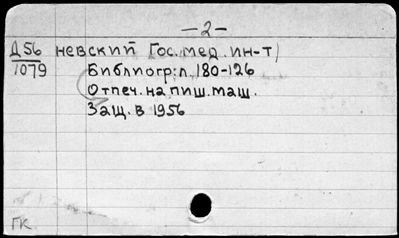 — 2 —
Д56 невский Гос. мед. ин-т)
1079 Библиогр: л. 180-126
Отпеч. на пиш. маш.
Защ. в 1956
ГК